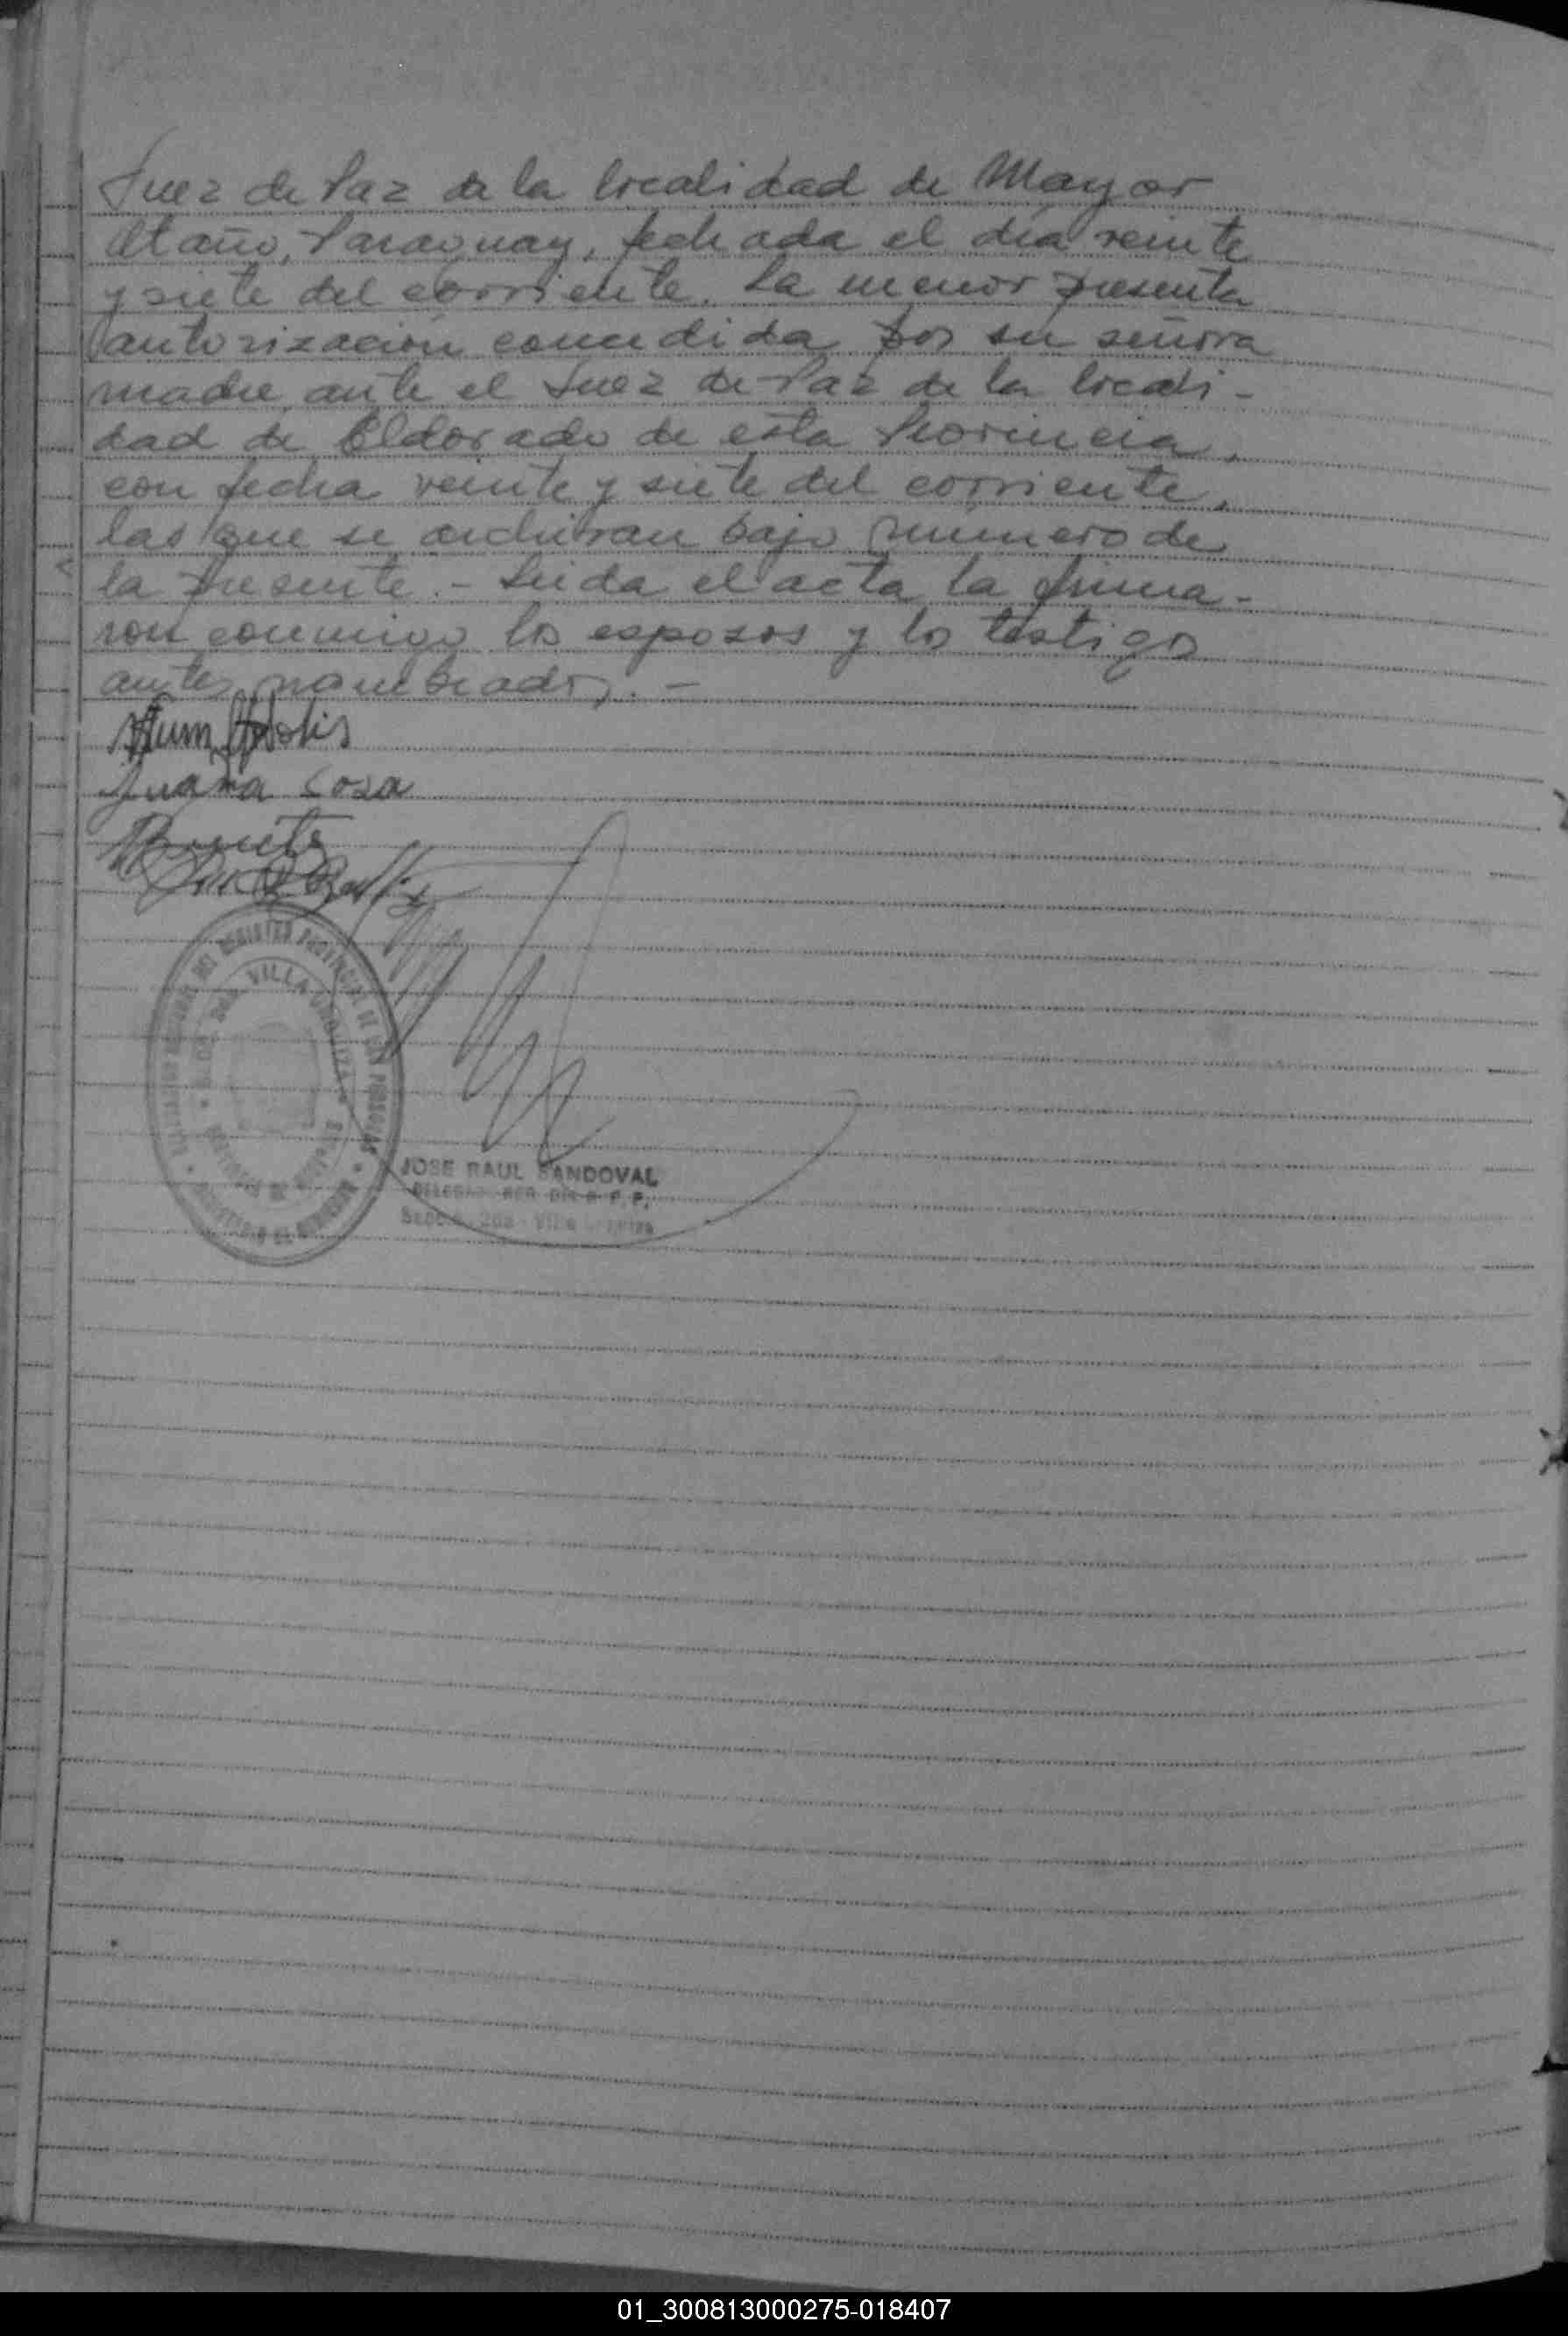 Juez de Paz de la localidad de Mayor
Otaño, Paraguay, fechada el día veinte
y siete del corriente. La menor presenta
autorización concedida por su señora
madre ante el Juez de Paz de la locali-
dad de Eldorado de esta Provincia,
con fecha veinte y siete del corriente,
las que se archivan bajo número de
la presente. - Leida el acta la firma-
ron conmigo los esposos y los testigos
antes nombrados. -
Juana Sosa
REGISTRO PROVINCIAL DE LAS PERSONAS
VILLA URQUIZA
JOSE RAUL SANDOVAL
Villa Urquiza
01_300813000275-018407